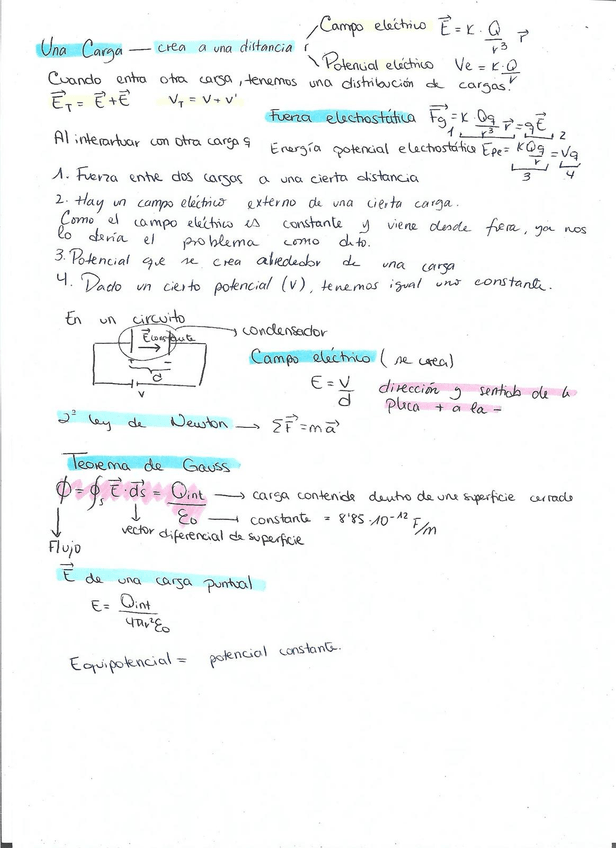 Campo eléctrico E⃗ = K · Q/r³ r⃗
Una Carga — crea a una distancia
Potencial eléctrico Ve = K · Q/r
Cuando entra otra carga, tenemos una distribución de cargas.
E⃗T = E⃗ + E⃗ VT = V + V'
Fuerza electrostática F⃗g = K · Qq/r³ r⃗ = qE⃗
1 2
Al interactuar con otra carga q Energía potencial electrostática Epe = KQq/r = Vq
3 4
1. Fuerza entre dos cargas a una cierta distancia
2. Hay un campo eléctrico externo de una cierta carga.
Como el campo eléctrico es constante y viene desde fuera, ya nos
lo daría el problema como dato.
3. Potencial que se crea alrededor de una carga
4. Dado un cierto potencial (V), tenemos igual una constante.
En un circuito
E⃗ constante → condensador
+ −
d
V
Campo eléctrico (se crea)
E = V/d dirección y sentido de la
placa + a la −
2ª ley de Newton → ΣF⃗ = ma⃗
Teorema de Gauss
ϕ = ∮s E⃗ · d⃗s = Qint/ε0 → carga contenida dentro de una superficie cerrada
→ constante = 8'85 · 10⁻¹² F/m
vector diferencial de superficie
Flujo
E⃗ de una carga puntual
E = Qint/4πr²ε0
Equipotencial = potencial constante.